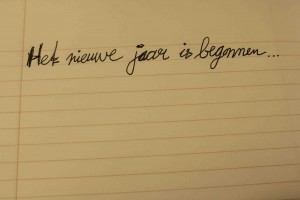 Het nieuwe jaar is begonnen...